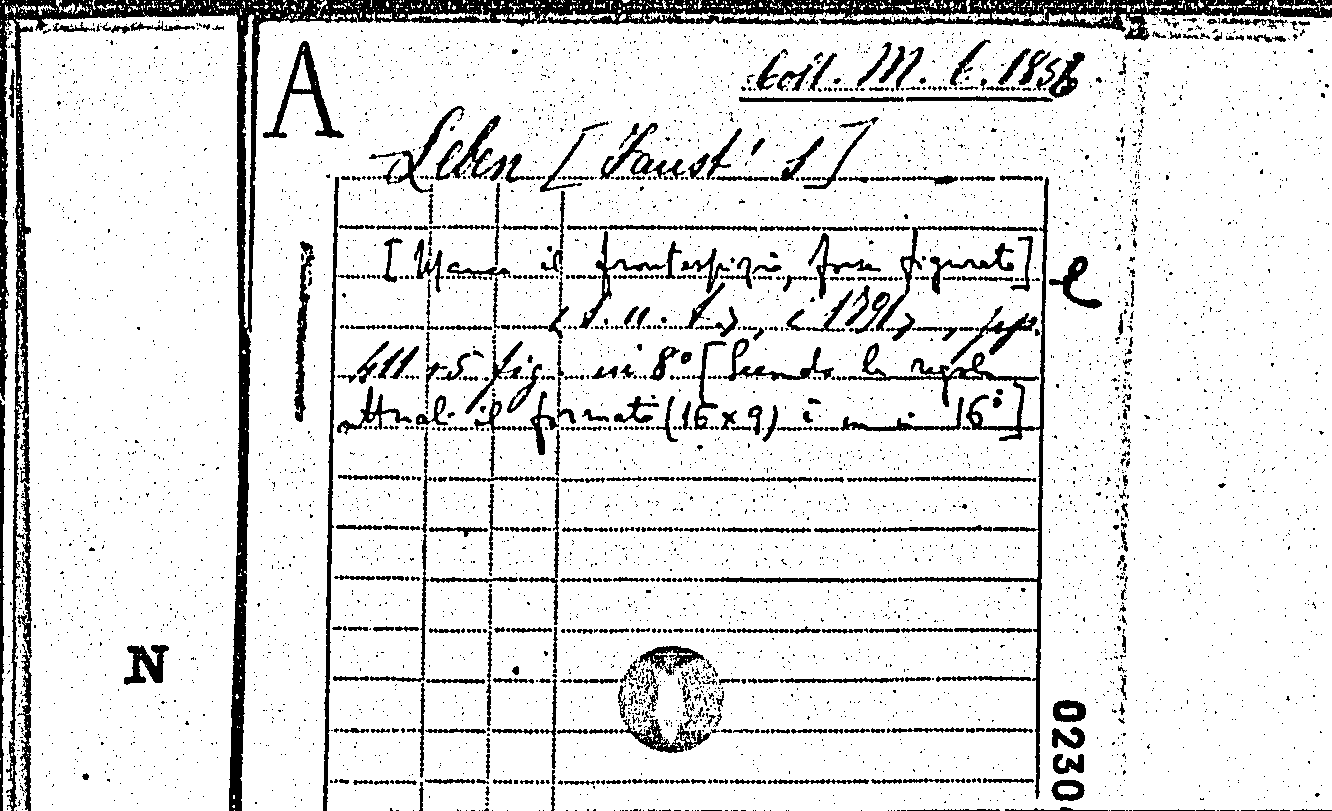 A
Coll. M. C. 1856.
Leben [Faust's]
[Manca il frontespizio, forse figurato]
e
<S. n. t.>, <1791>, pp.
411 +5 fig. in 8° [Secondo le regole
attuali il formato (16 x 9) è in 16°]
N
0230